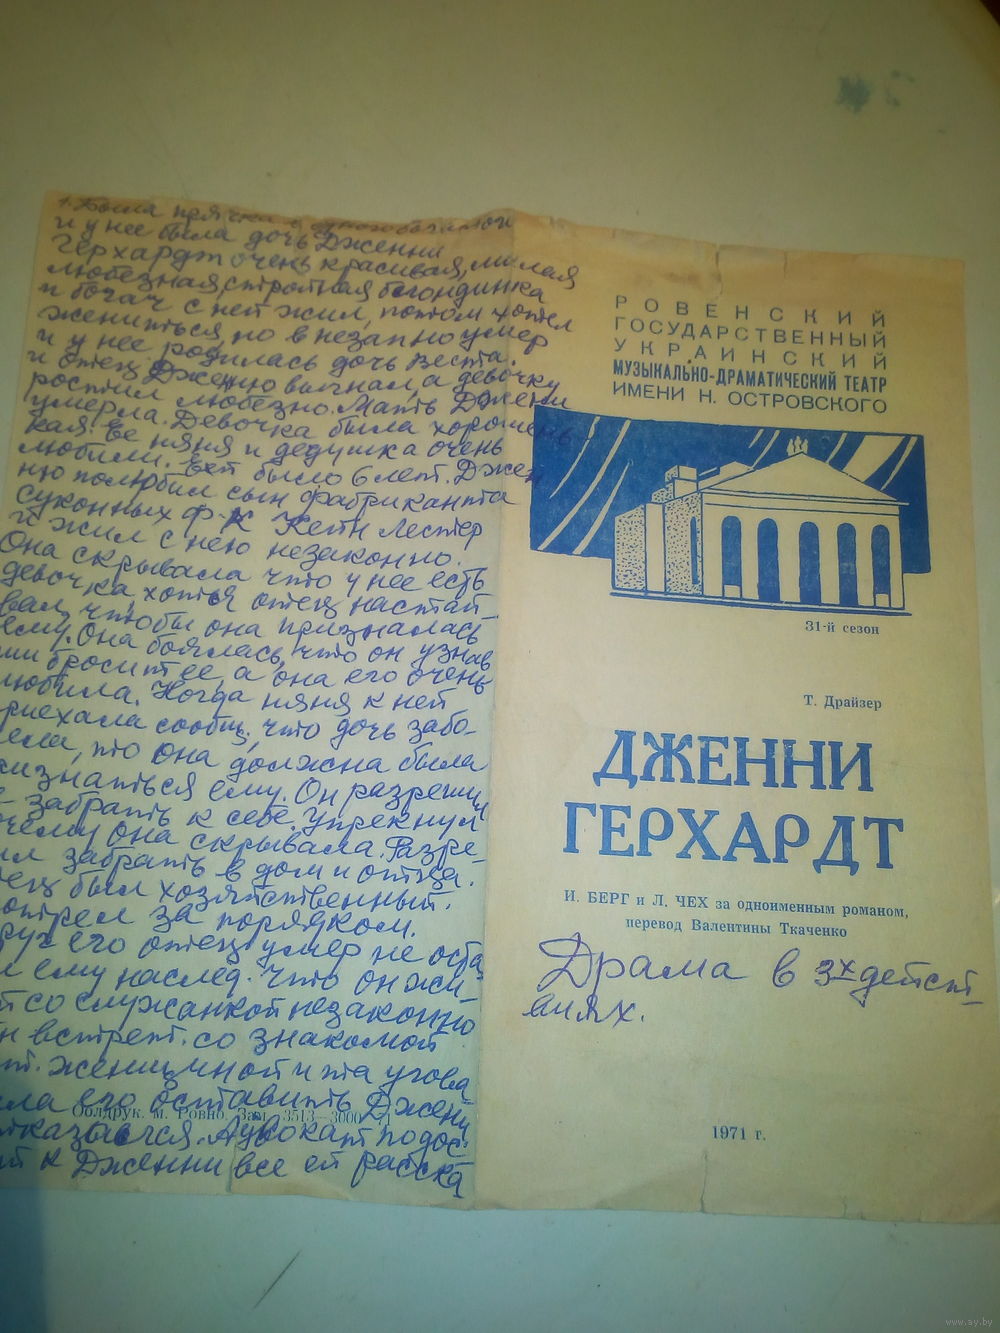 1. Была прачка
и у нее была дочь Дженни
Герхардт очень красивая, милая
любезная, стройная блондинка
и богач с ней жил, потом хотел
жениться, но внезапно умер
и у нее родилась дочь Веста.
и отец Дженню выгнал, а девочку
ростил любезно. Мать Джени
умерла. Девочка была хорошень-
кая. Ее няня и дедушка очень
любили. Ей было 6 лет. Джен
ню полюбил сын фабриканта
суконных ф-к Кейн Лестер
и жил с нею незаконно.
Она скрывала что у нее есть
девочка, хотя отец настаи-
вал, чтобы она призналась
ему. Она боялась, что он узнав
бросит ее, а она его очень
любила. Когда няня к ней
риехала сообщ. что дочь забо-
ела, то она должна была
ризнаться ему. Он разрешил
забрать к себе. Упрекнул
очему она скрывала. Разре-
ил забрать в дом и отца.
тец был хозяйственный.
отрел за порядком.
руг его отец умер не оста
л ему наслед. что он жи-
т со служанкой незаконно
н встрет. со знакомой
женщиной и та угова
ла его оставить Джени
Облдрук. м. Ровно, Зам. 3513—3000
тказался. Адвокат подос
л к Дженни все ей расска
РОВЕНСКИЙ
ГОСУДАРСТВЕННЫЙ
УКРАИНСКИЙ
МУЗЫКАЛЬНО-ДРАМАТИЧЕСКИЙ ТЕАТР
ИМЕНИ Н. ОСТРОВСКОГО
31-й сезон
Т. Драйзер
ДЖЕННИ
ГЕРХАРДТ
И. БЕРГ и Л. ЧЕХ за одноименным романом,
перевод Валентины Ткаченко
Драма в 3х дейст-
виях.
1971 г.
www.ay.by